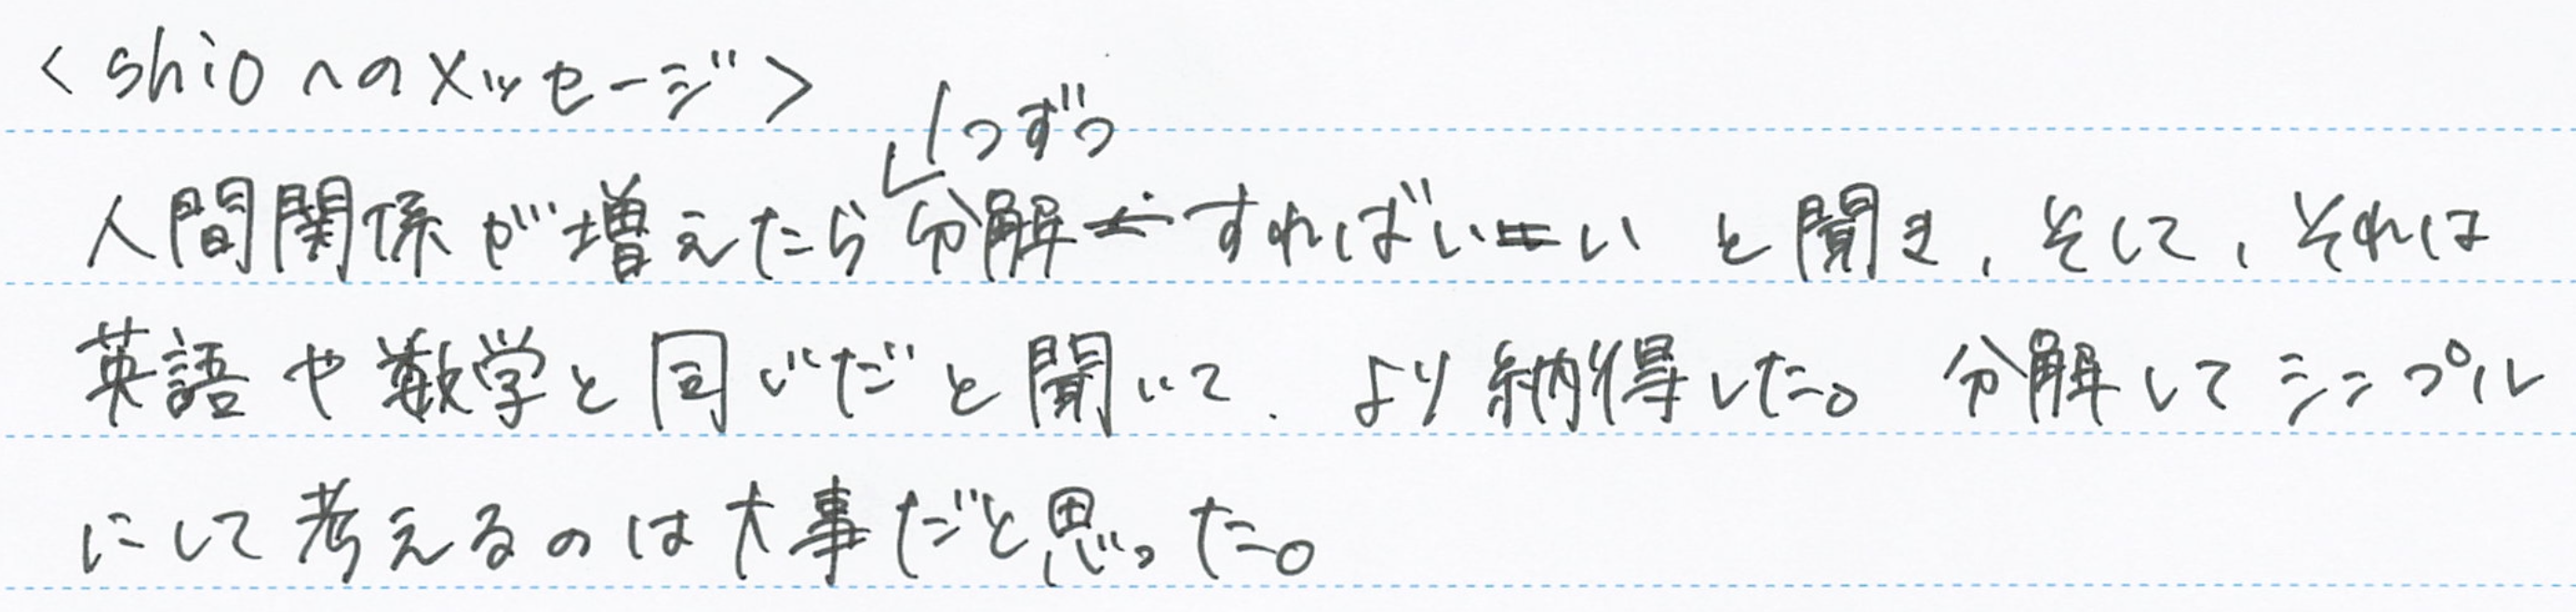 <shioへのメッセージ>
1つずつ
人間関係が増えたら分解すればいい と聞き, そして, それは
英語や数学と同じだと聞いて. より納得した。 分解してシンプル
にして考えるのは大事だと思った。